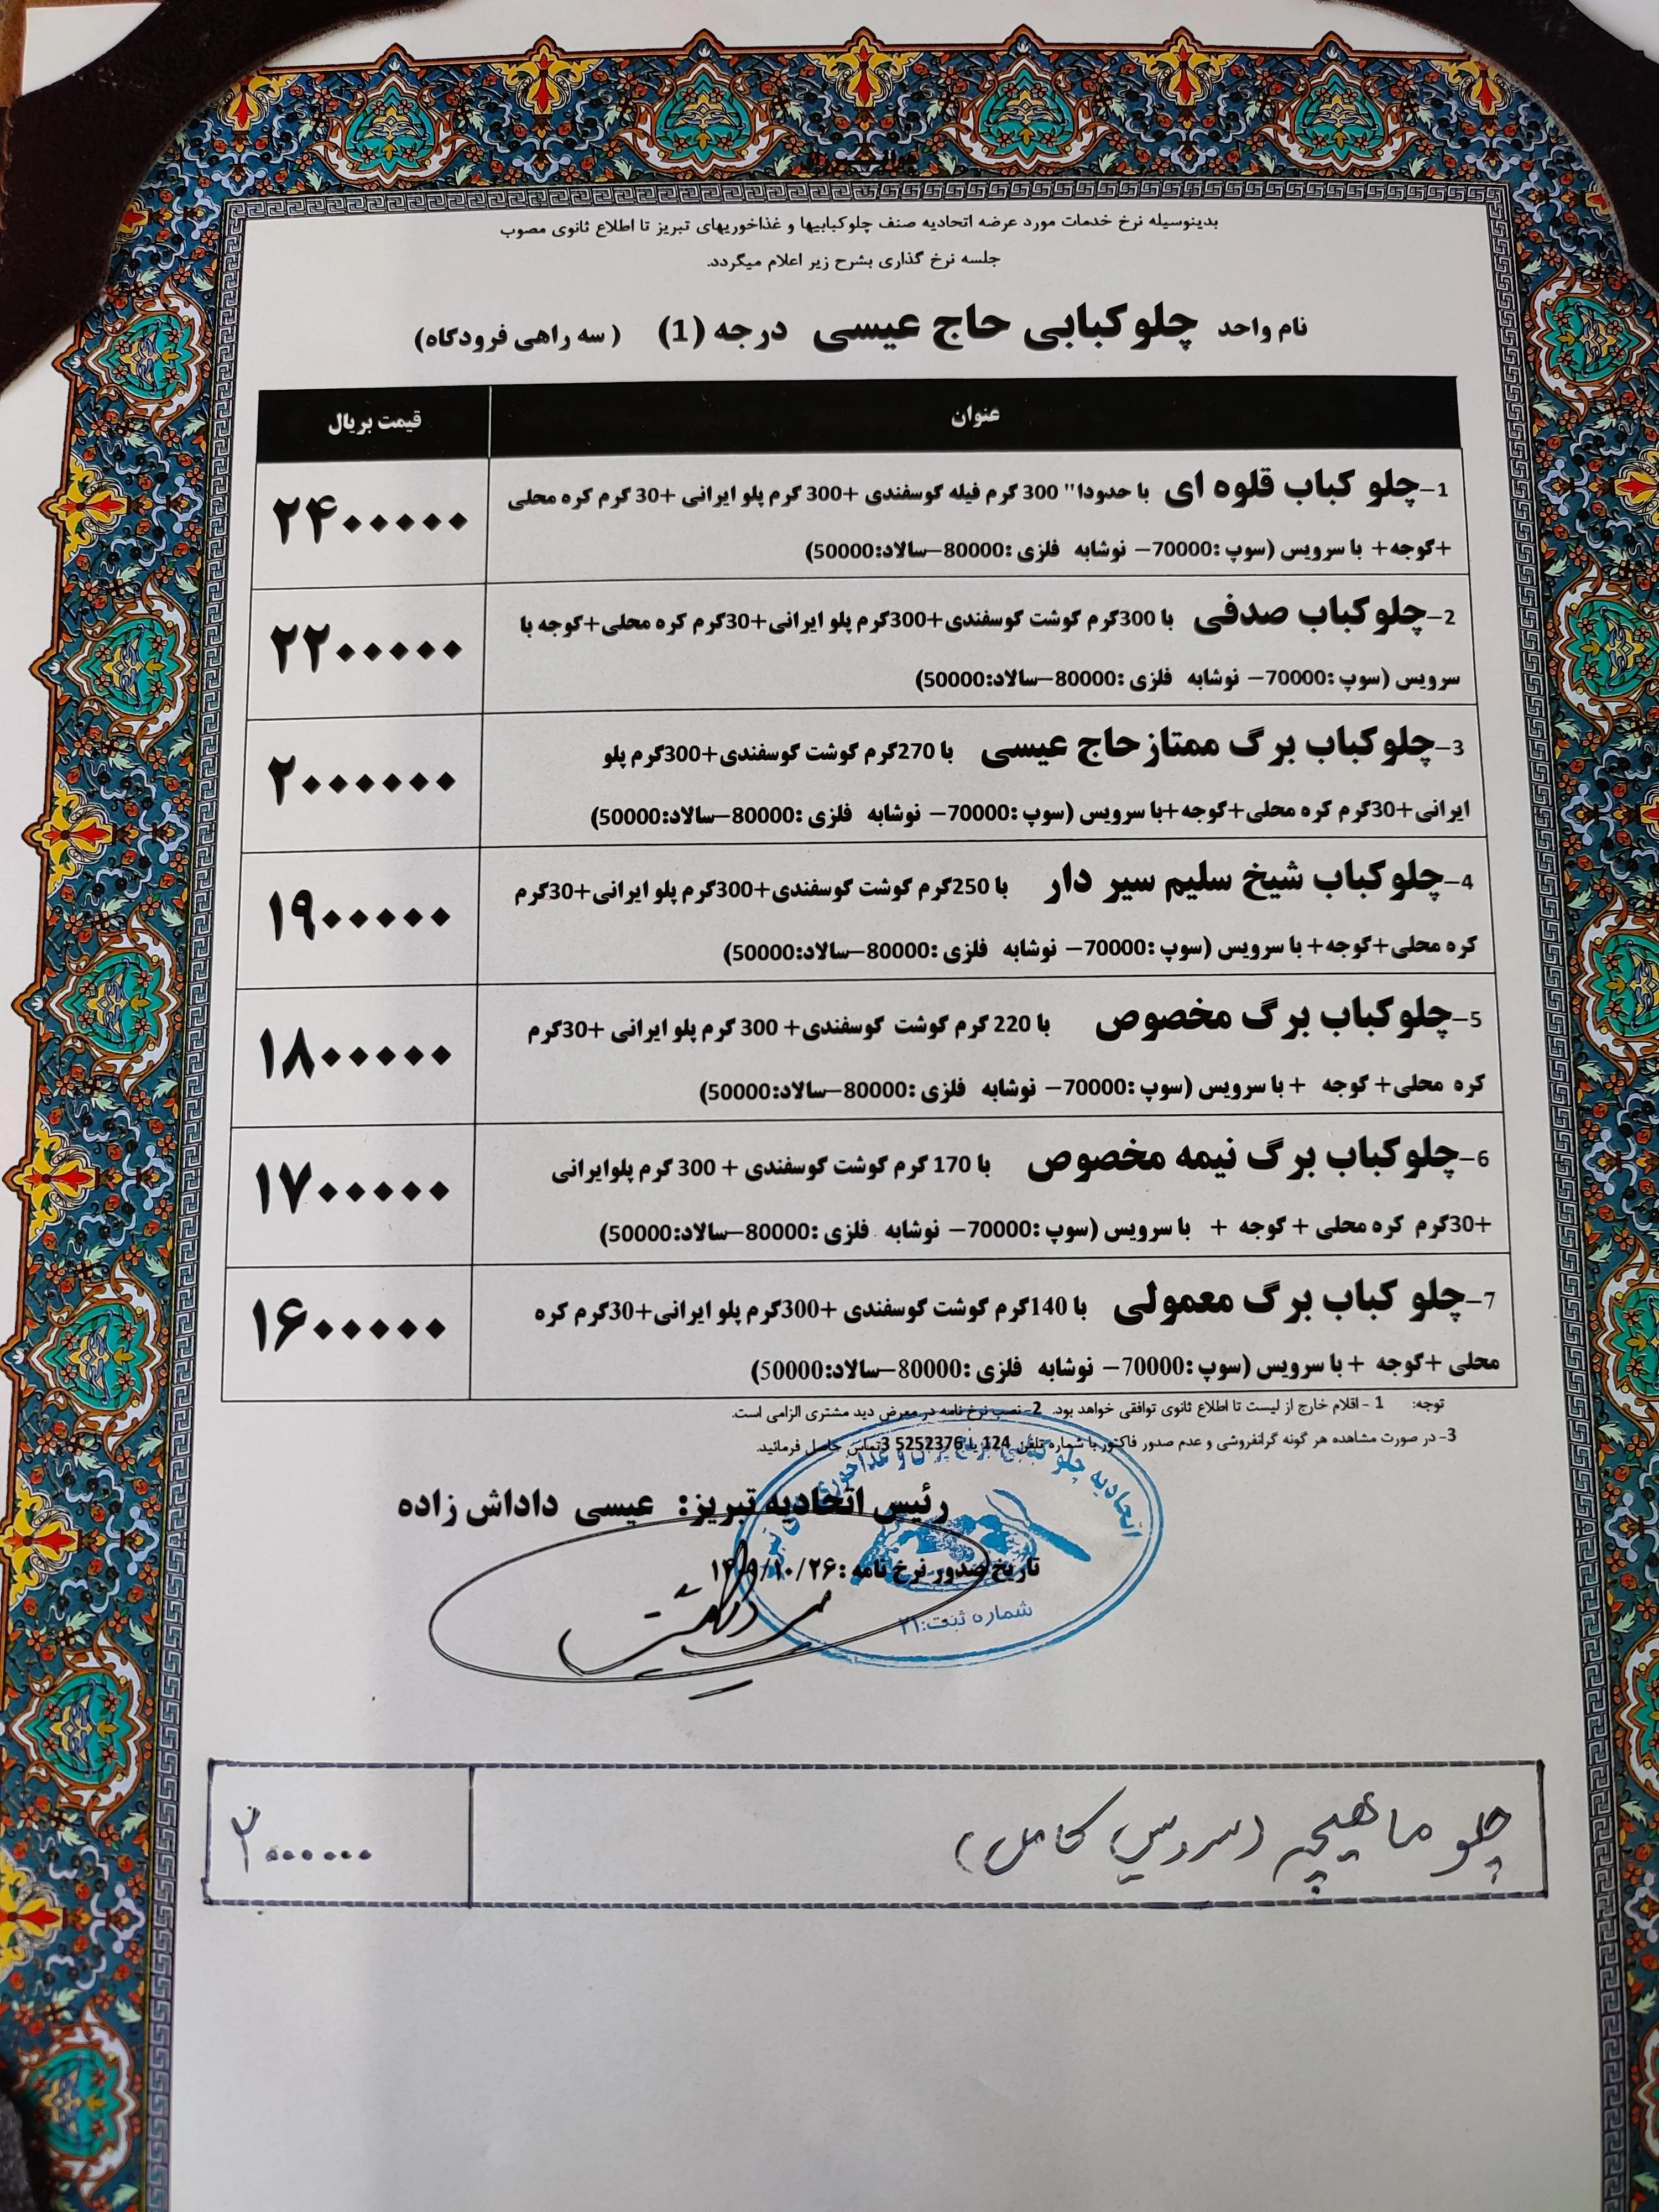 بدینوسیله نرخ خدمات مورد عرضه اتحادیه صنف چلوکبابیها و غذاخوریهای تبریز تا اطلاع ثانوی مصوب
جلسه نرخ گذاری بشرح زیر اعلام میگردد.
نام واحد چلوکبابی حاج عیسی درجه (1) (سه راهی فرودگاه)
عنوان قیمت بریال
1-چلو کباب قلوه ای با حدودا" 300 گرم فیله گوسفندی +300 گرم پلو ایرانی +30 گرم کره محلی
+گوجه+ با سرویس (سوپ :70000- نوشابه فلزی :80000-سالاد:50000)
۲۴۰۰۰۰۰
2-چلوکباب صدفی با 300گرم گوشت گوسفندی+300گرم پلو ایرانی+30گرم کره محلی+گوجه با
سرویس (سوپ :70000- نوشابه فلزی :80000-سالاد:50000)
۲۲۰۰۰۰۰
3-چلوکباب برگ ممتازحاج عیسی با 270گرم گوشت گوسفندی+300گرم پلو
ایرانی+30گرم کره محلی+گوجه+با سرویس (سوپ :70000- نوشابه فلزی :80000-سالاد:50000)
۲۰۰۰۰۰۰
4-چلوکباب شیخ سلیم سیر دار با 250گرم گوشت گوسفندی+300گرم پلو ایرانی+30گرم
کره محلی+گوجه+ با سرویس (سوپ :70000- نوشابه فلزی :80000-سالاد:50000)
۱۹۰۰۰۰۰
5-چلوکباب برگ مخصوص با 220 گرم گوشت گوسفندی+ 300 گرم پلو ایرانی +30گرم
کره محلی+ گوجه + با سرویس (سوپ :70000- نوشابه فلزی :80000-سالاد:50000)
۱۸۰۰۰۰۰
6-چلوکباب برگ نیمه مخصوص با 170 گرم گوشت گوسفندی + 300 گرم پلوایرانی
+30گرم کره محلی + گوجه + با سرویس (سوپ :70000- نوشابه فلزی :80000-سالاد:50000)
۱۷۰۰۰۰۰
7-چلو کباب برگ معمولی با 140گرم گوشت گوسفندی +300گرم پلو ایرانی+30گرم کره
محلی +گوجه + با سرویس (سوپ :70000- نوشابه فلزی :80000-سالاد:50000)
۱۶۰۰۰۰۰
توجه: 1 - اقلام خارج از لیست تا اطلاع ثانوی توافقی خواهد بود. 2- نصب نرخ نامه در معرض دید مشتری الزامی است.
3- در صورت مشاهده هر گونه گرانفروشی و عدم صدور فاکتور با شماره تلفن 124 یا 5252376 3تماس حاصل فرمائید.
رئیس اتحادیه تبریز: عیسی داداش زاده
تاریخ صدور نرخ نامه :
شماره ثبت:۲۱
چلو ماهیچه (سرویس کامل)
۲۰۰۰۰۰۰